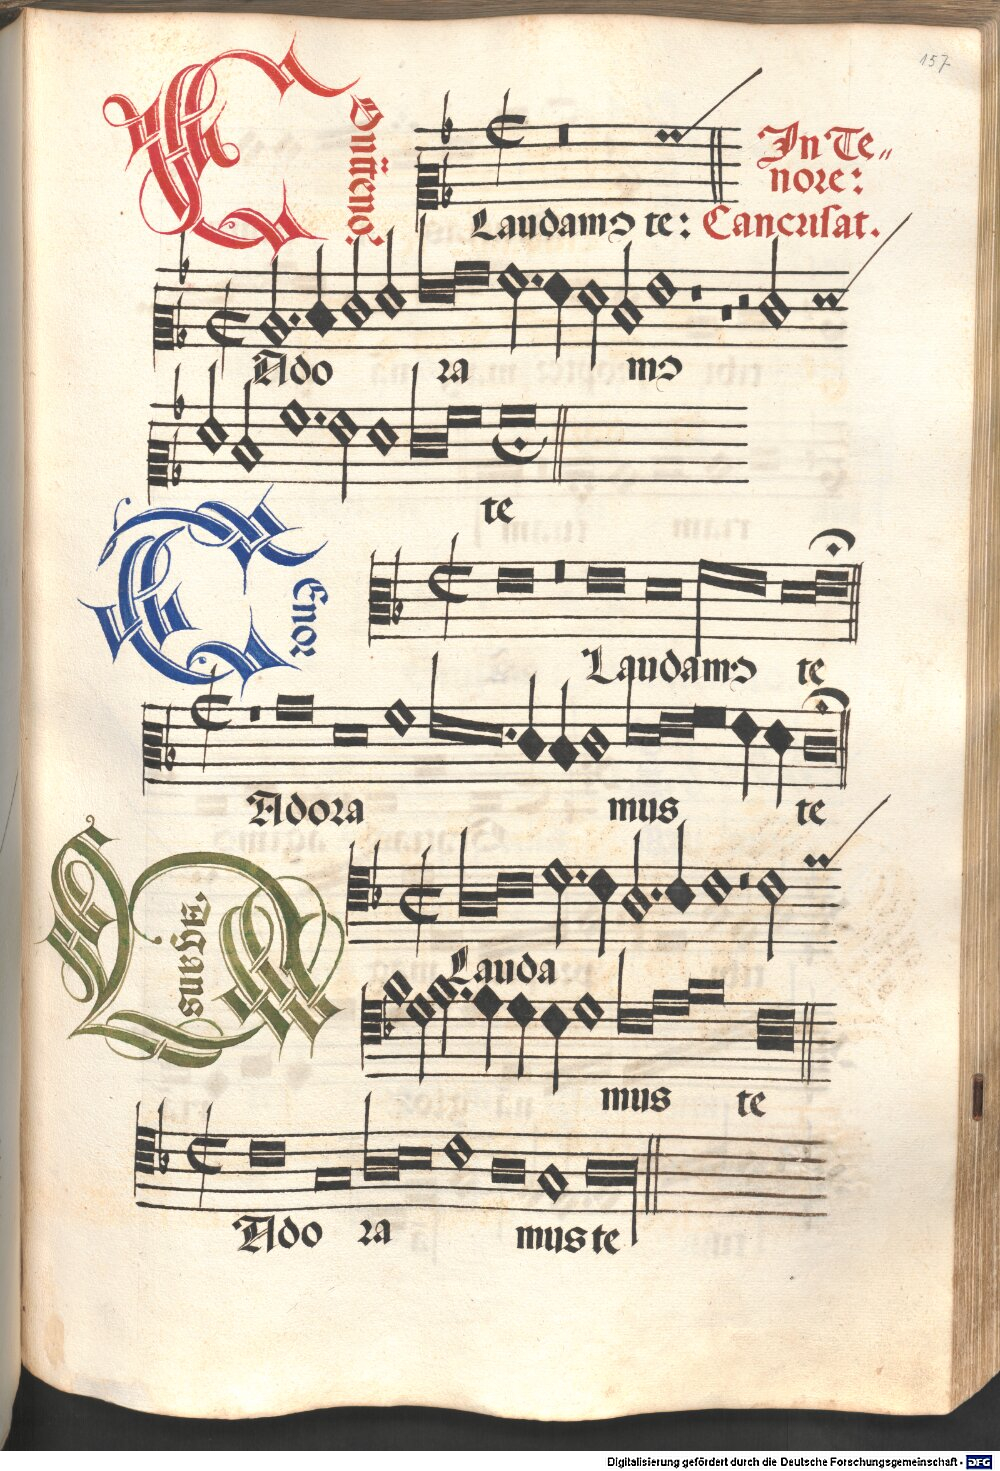 157
Contrateno2
In Te„
no2e:
Laudamꝰ te: Cancrisat.
Ado ra mꝰ
te
Teno2
Laudamꝰ te
Ado2a mus te
Vagans.
Lauda
mus te
Ado ra mus te
Digitalisierung gefördert durch die Deutsche Forschungsgemeinschaft - DFG